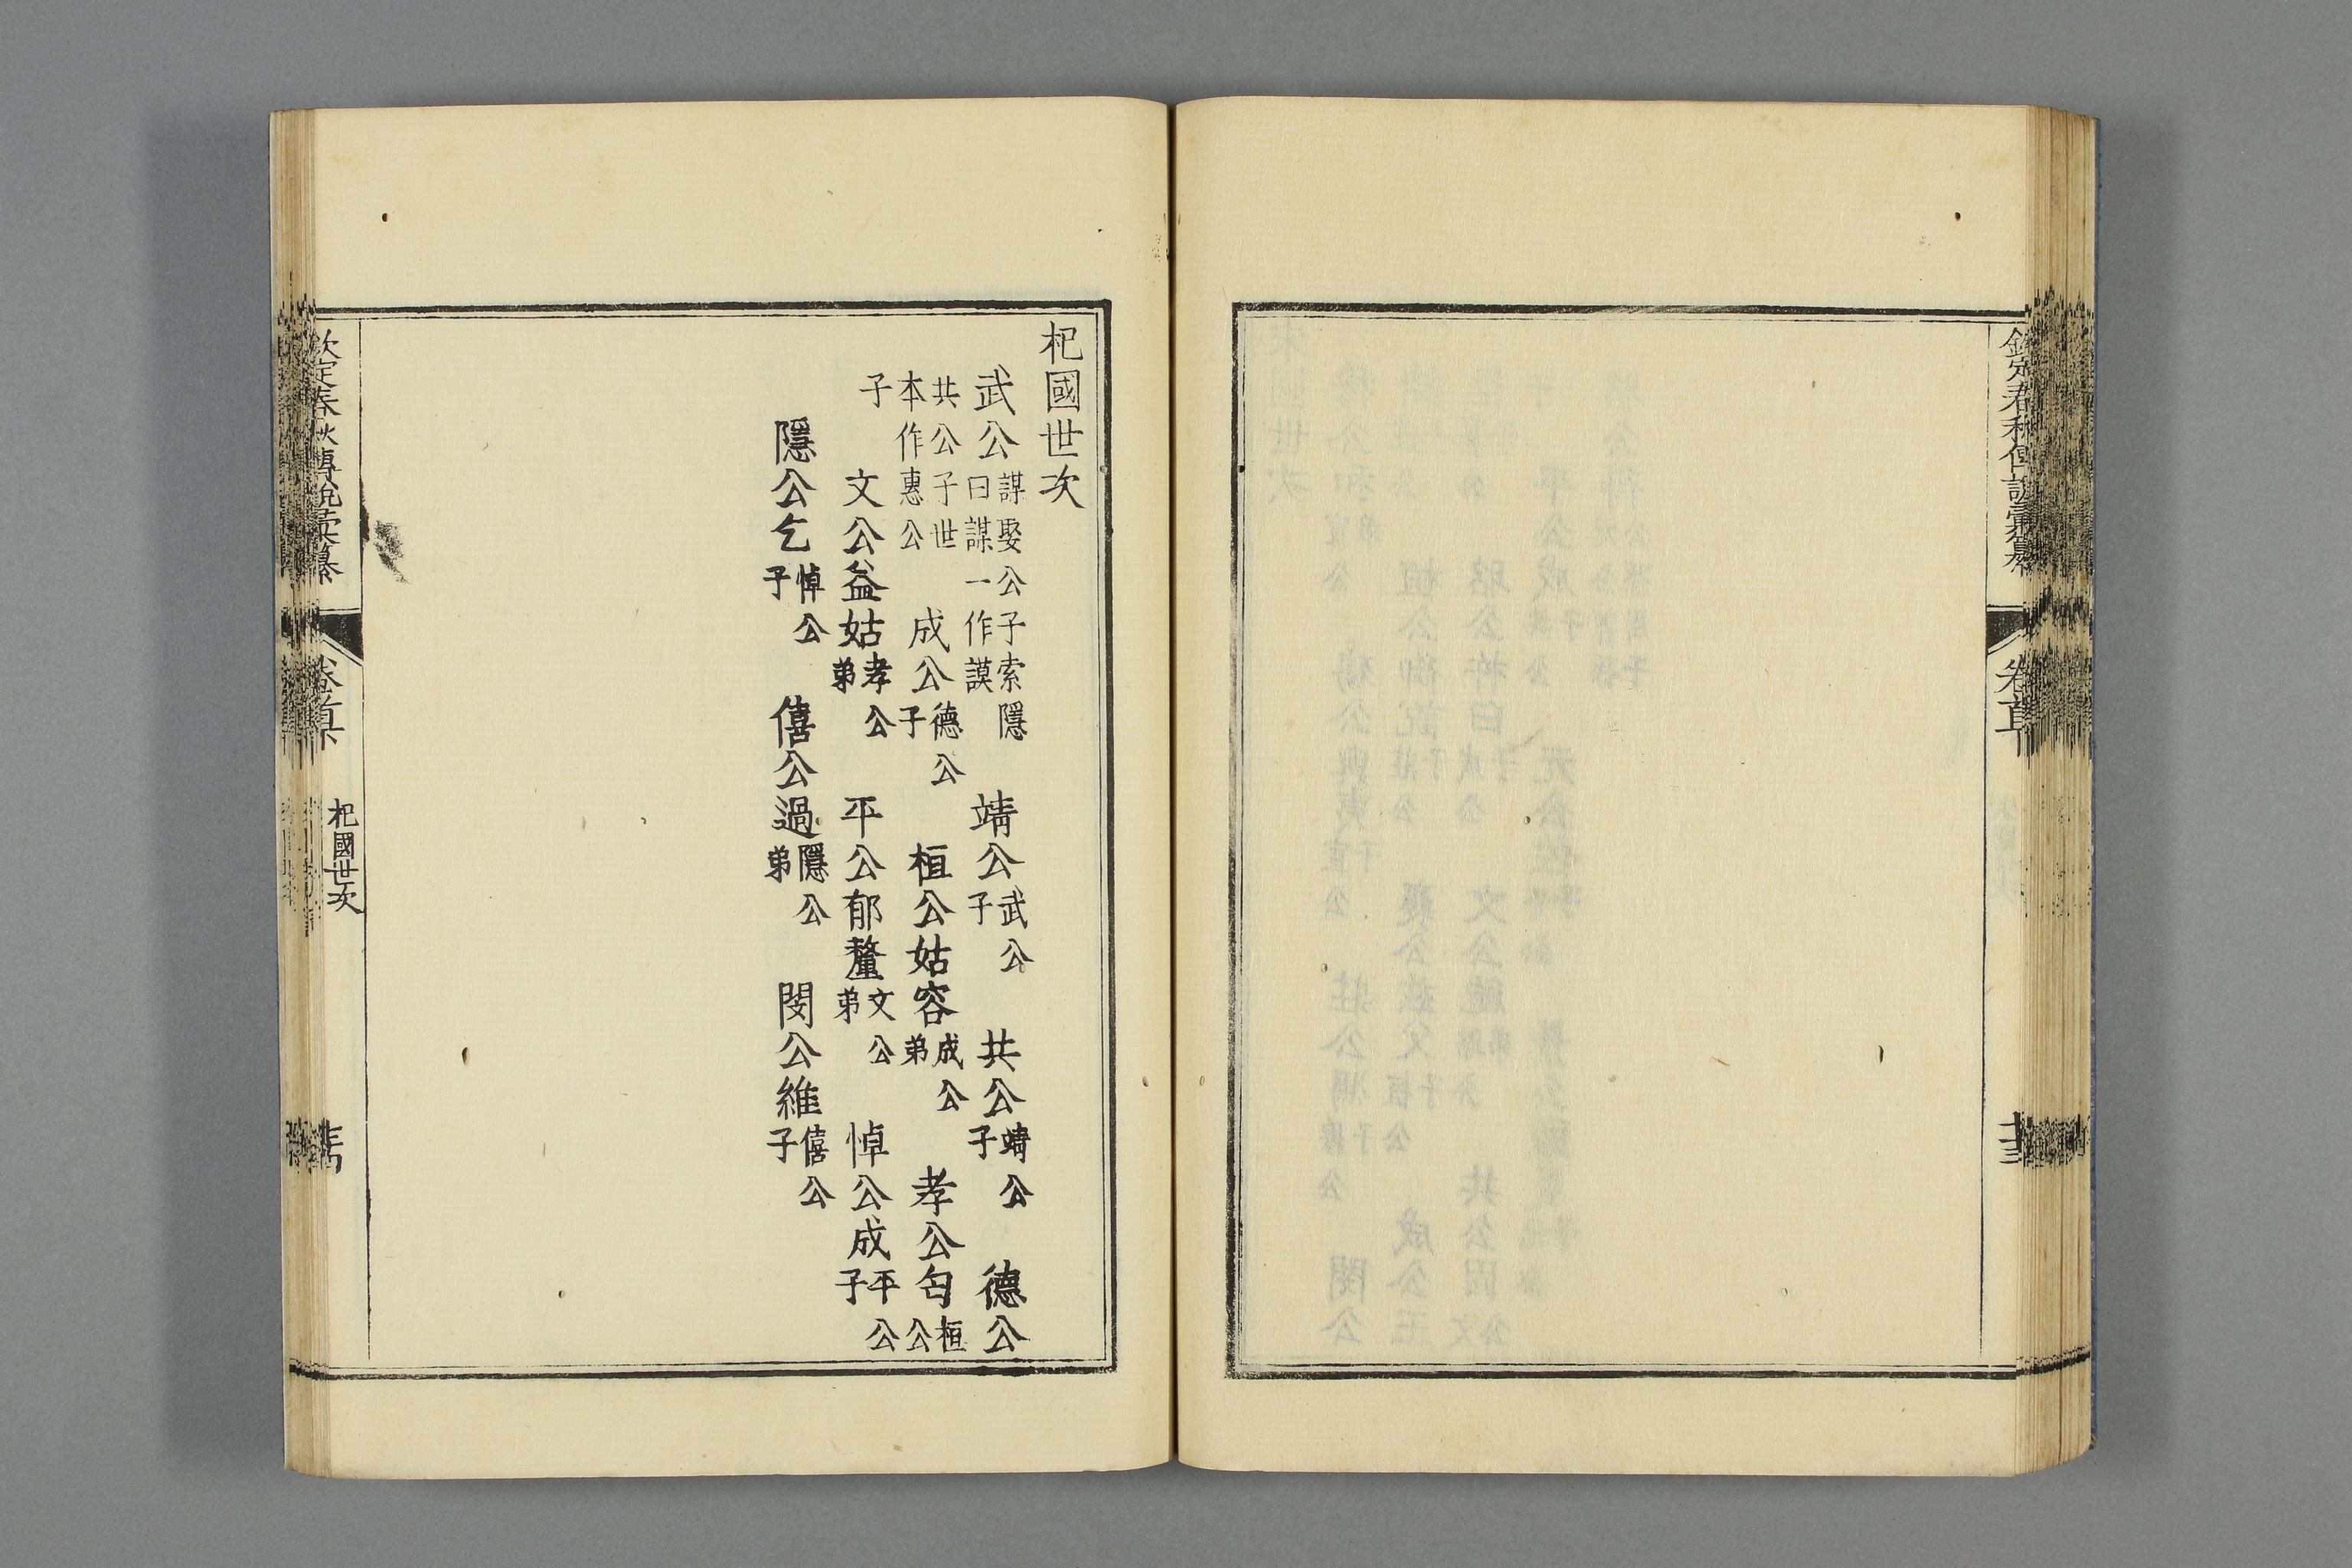 定春秋傳說彙纂
卷首下
杞國世次
武公謀娶公子索隱曰謀一作謨　靖公武公子　共公靖公子　德公
共公子世本作惠公　成公德公子　桓公姑容成公弟　孝公匄桓公
子　文公益姑孝公弟　平公郁釐文公弟　悼公成平公子
隱公乞悼公子　僖公過隱公弟　閔公維僖公子
欽定春秋傳說彙纂
卷首下
杞國世次